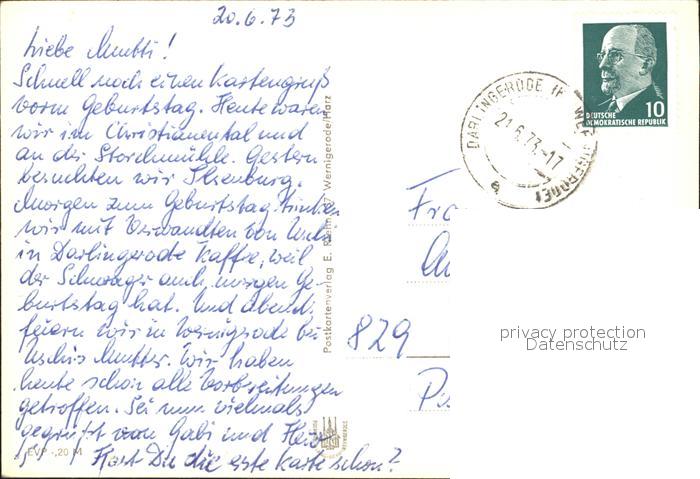 20.6.73
Liebe Mutti!
Schnell noch einen Kartengruß
vorm Geburtstag. Heute waren
wir im Christianental und
an der Storchmühle. Gestern
besuchten wir Ilsenburg.
Morgen zum Geburtstag trinken
wir mit Verwandten von Uschi
in Darlingerode Kaffee, weil
der Schwager auch morgen Ge-
burtstag hat. Und abends
feiern wir in Wernigerode bei
Uschis Mutter. Wir haben
heute schon alle Vorbereitungen
getroffen. Sei nun vielmals
gegrüßt von Gabi und
Hast Du die erste Karte schon?
EVP -,20 M
Postkartenverlag E. 37 Wernigerode/Harz
DARLINGERODE
21.6.73.-17
DEUTSCHE
DEMOKRATISCHE REPUBLIK
10
829
privacy protection
Datenschutz